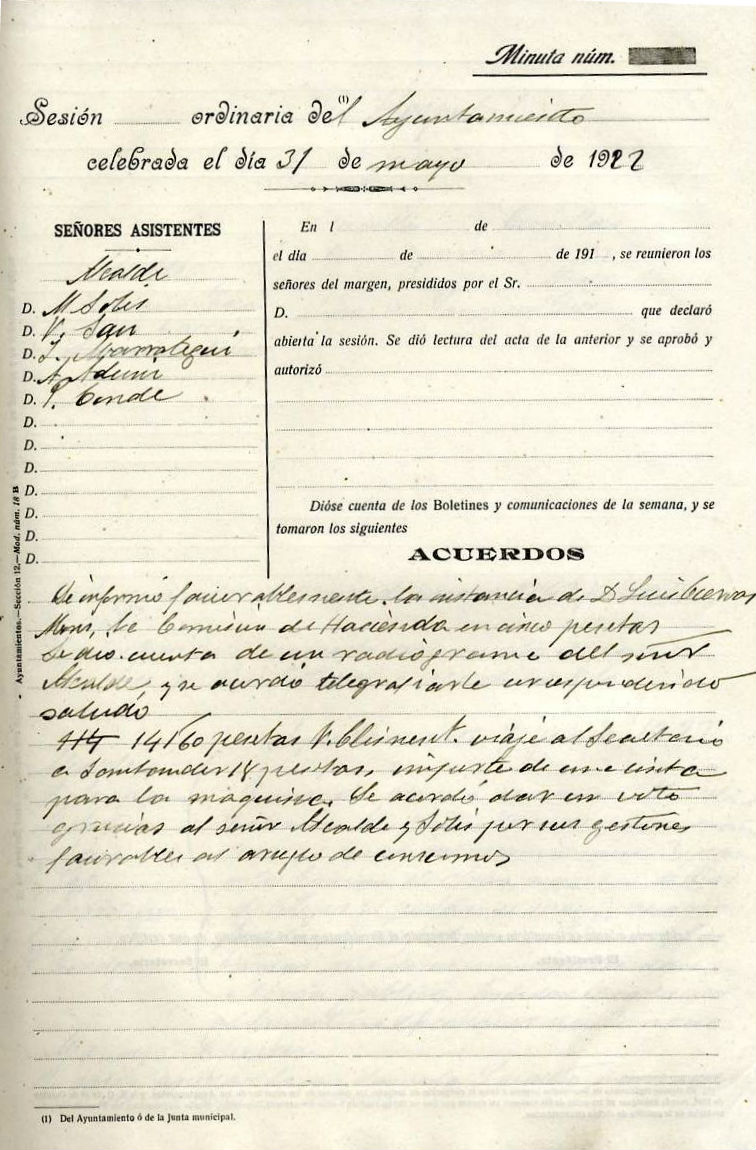 Minuta núm.
Sesión ordinaria del (1) Ayuntamiento
celebrada el día 31 de mayo de 1922
SEÑORES ASISTENTES
Alcalde
D. M Solis
D. V. San
D.
D. A.
D. P. Conde
D.
D.
D.
D.
D.
D.
D.
Ayuntamientos.—Sección 12.—Mod. núm. 18 B
En l de
el dia de de 191 , se reunieron los
señores del margen, presididos por el Sr.
D. que declaró
abierta la sesión. Se dió lectura del acta de la anterior y se aprobó y
autorizó
Dióse cuenta de los Boletines y comunicaciones de la semana, y se
tomaron los siguientes
ACUERDOS
Se informó favorablemente la instancia de D Luis Cuevas
la Comisión de Hacienda en cinco pesetas
Se dio cuenta de un radiograma del señor
Alcalde, y se acordó telegrafiarle correspondiendo
saludo
14,60 pesetas V. viaje al Secretario
a Santander 18 pesetas, importe de una cinta
para la maquina. Se acordó dar un voto
gracias al señor Alcalde y Solis por sus gestiones
favorables al arreglo de consumos
(1) Del Ayuntamiento ó de la Junta municipal.